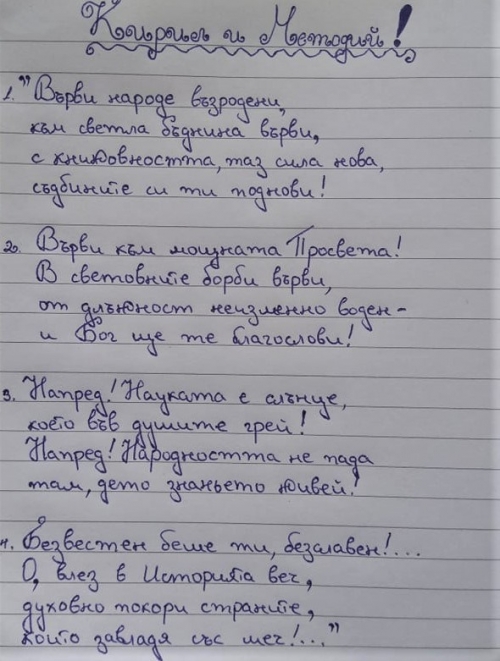 Кирил и Методий!
1. "Върви народе възродени,
към светла бъднина върви,
с книжовността, таз сила нова,
съдбините си ти поднови!
2. Върви към мощната Просвета!
В световните борби върви,
от длъжност неизменно воден -
и Бог ще те благослови!
3. Напред! Науката е слънце,
което във душите грей!
Напред! Народността не пада
там, дето знаньето живей!
4. Безвестен беше ти, безславен!...
О, влез в Историята веч,
духовно покори страните,
които завладя със меч!..."